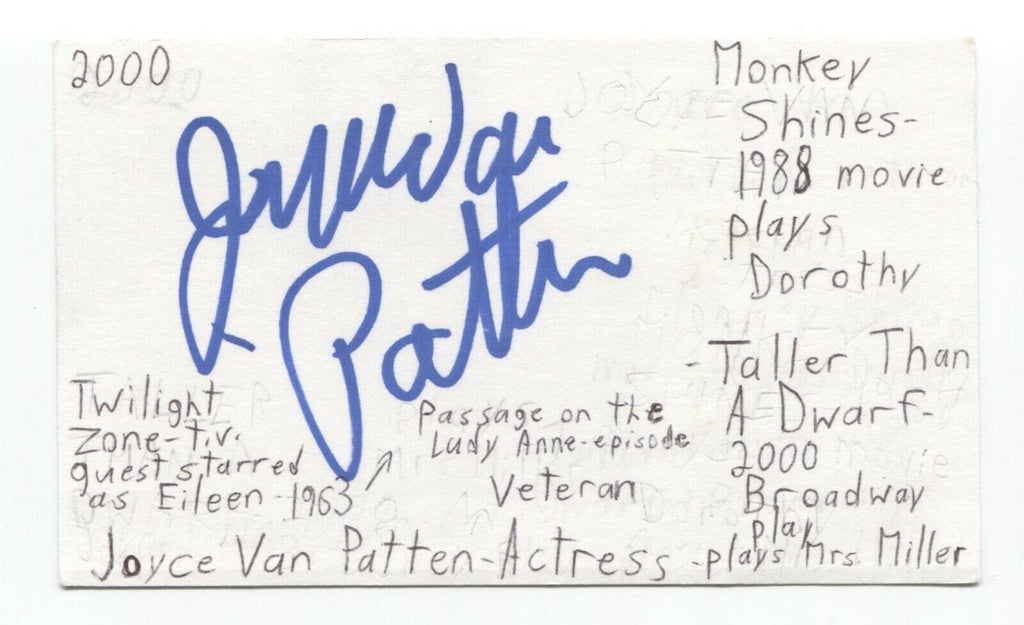 2000
Joyce Van
Patten
Monkey
Shines-
1988 movie
plays
Dorothy
-Taller Than
A Dwarf-
2000
Broadway
play
-plays Mrs Miller
Twilight
Zone-T.V.
guest starred
as Eileen-1963
Passage on the
Lady Anne-episode
Veteran
Joyce Van Patten-Actress